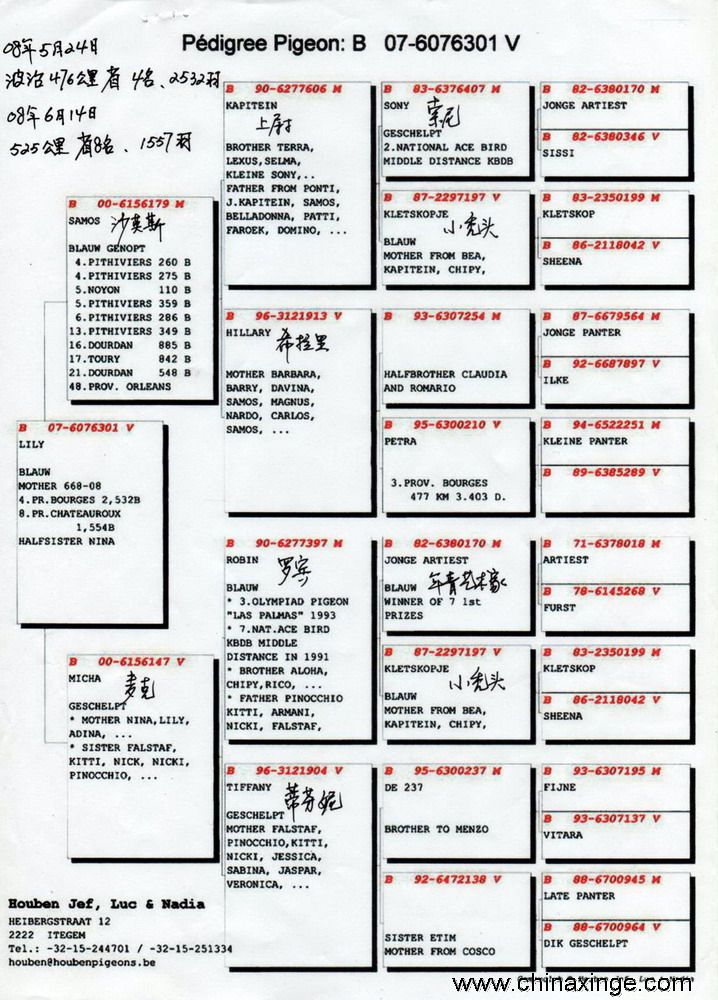 Pédigree Pigeon: B 07-6076301 V
08年5月24日
波治476公里省4名、2532羽
08年6月14日
525公里省8名、1557羽
B 07-6076301 V
LILY
BLAUW
MOTHER 668-08
4.PR.BOURGES 2,532B
8.PR.CHATEAUROUX
1,554B
HALFSISTER NINA
B 00-6156179 M
SAMOS 沙莫斯
BLAUW GENOPT
4.PITHIVIERS 260 B
4.PITHIVIERS 275 B
5.NOYON 110 B
5.PITHIVIERS 359 B
6.PITHIVIERS 286 B
13.PITHIVIERS 349 B
16.DOURDAN 885 B
17.TOURY 842 B
21.DOURDAN 548 B
48.PROV. ORLEANS
B 00-6156147 V
MICHA
麦克
GESCHELPT
* MOTHER NINA,LILY,
ADINA, ...
* SISTER FALSTAF,
KITTI, NICK, NICKI,
PINOCCHIO, ...
B 90-6277606 M
KAPITEIN
上尉
BROTHER TERRA,
LEXUS,SELMA,
KLEINE SONY,..
FATHER FROM PONTI,
J.KAPITEIN, SAMOS,
BELLADONNA, PATTI,
FAROEK, DOMINO, ...
B 96-3121913 V
HILLARY 希拉里
MOTHER BARBARA,
BARRY, DAVINA,
SAMOS, MAGNUS,
NARDO, CARLOS,
SAMOS, ...
B 90-6277397 M
ROBIN 罗宾
BLAUW
* 3.OLYMPIAD PIGEON
"LAS PALMAS" 1993
* 7.NAT.ACE BIRD
KBDB MIDDLE
DISTANCE IN 1991
* BROTHER ALOHA,
CHIPY,RICO, ...
* FATHER PINOCCHIO
KITTI, ARMANI,
NICKI, FALSTAF,
B 96-3121904 V
TIFFANY 蒂芬妮
GESCHELPT
MOTHER FALSTAF,
PINOCCHIO,KITTI,
NICKI, JESSICA,
SABINA, JASPAR,
VERONICA, ...
B 83-6376407 M
SONY 索尼
GESCHELPT
2.NATIONAL ACE BIRD
MIDDLE DISTANCE KBDB
B 87-2297197 V
KLETSKOPJE
小秃头
BLAUW
MOTHER FROM BEA,
KAPITEIN, CHIPY,
B 93-6307254 M
HALFBROTHER CLAUDIA
AND ROMARIO
B 95-6300210 V
PETRA
3.PROV. BOURGES
477 KM 3.403 D.
B 82-6380170 M
JONGE ARTIEST
BLAUW 年青艺术家
WINNER OF 7 1st
PRIZES
B 87-2297197 V
KLETSKOPJE
小秃头
BLAUW
MOTHER FROM BEA,
KAPITEIN, CHIPY,
B 95-6300237 M
DE 237
BROTHER TO MENZO
B 92-6472138 V
SISTER ETIM
MOTHER FROM COSCO
B 82-6380170 M
JONGE ARTIEST
B 82-6380346 V
SISSI
B 83-2350199 M
KLETSKOP
B 86-2118042 V
SHEENA
B 87-6679564 M
JONGE PANTER
B 92-6687897 V
ILKE
B 94-6522251 M
KLEINE PANTER
B 89-6385289 V
B 71-6378018 M
ARTIEST
B 78-6145268 V
FURST
B 83-2350199 M
KLETSKOP
B 86-2118042 V
SHEENA
B 93-6307195 M
FIJNE
B 93-6307137 V
VITARA
B 88-6700945 M
LATE PANTER
B 88-6700964 V
DIK GESCHELPT
Houben Jef, Luc & Nadia
HEIBERGSTRAAT 12
2222 ITEGEM
Tel.: -32-15-244701 / -32-15-251334
houben@houbenpigeons.be
www.chinaxinge.com